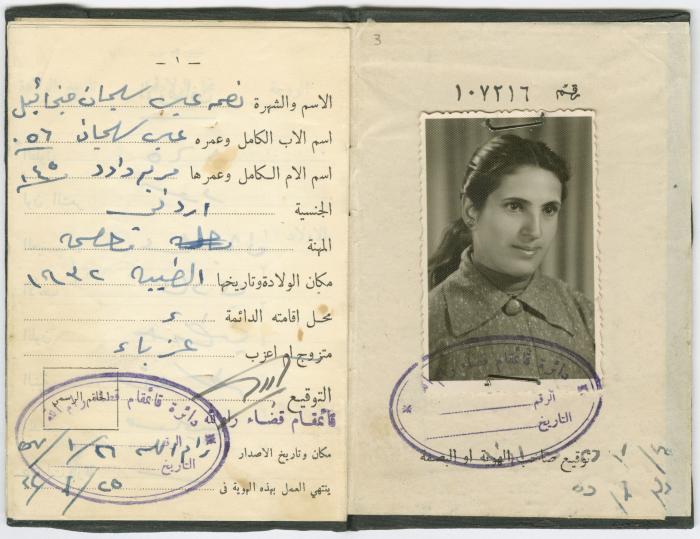 — ١ —
الاسم والشهرة نعمه عيسى سليمان ميخائيل
اسم الاب الكامل وعمره عيسى سليمان ٥٦
اسم الام الكامل وعمرها مريم داود ٤٥
الجنسية اردني
المهنة
مكان الولادة وتاريخها الطيبه ١٩٣٢
محل اقامته الدائمة
متزوج ام اعزب عزباء
التوقيع
الخاتم الرسمي
قائمقام قضاء رام الله
دائرة قائمقام قضاء رام الله
الرقم
التاريخ
مكان وتاريخ الاصدار رام الله ٢٦/١/٥٧
ينتهي العمل بهذه الهوية في
3
رقم ١٠٧٢١٦
دائرة قائمقام قضاء
الرقم
التاريخ
توقيع صاحب الهوية او البصمة